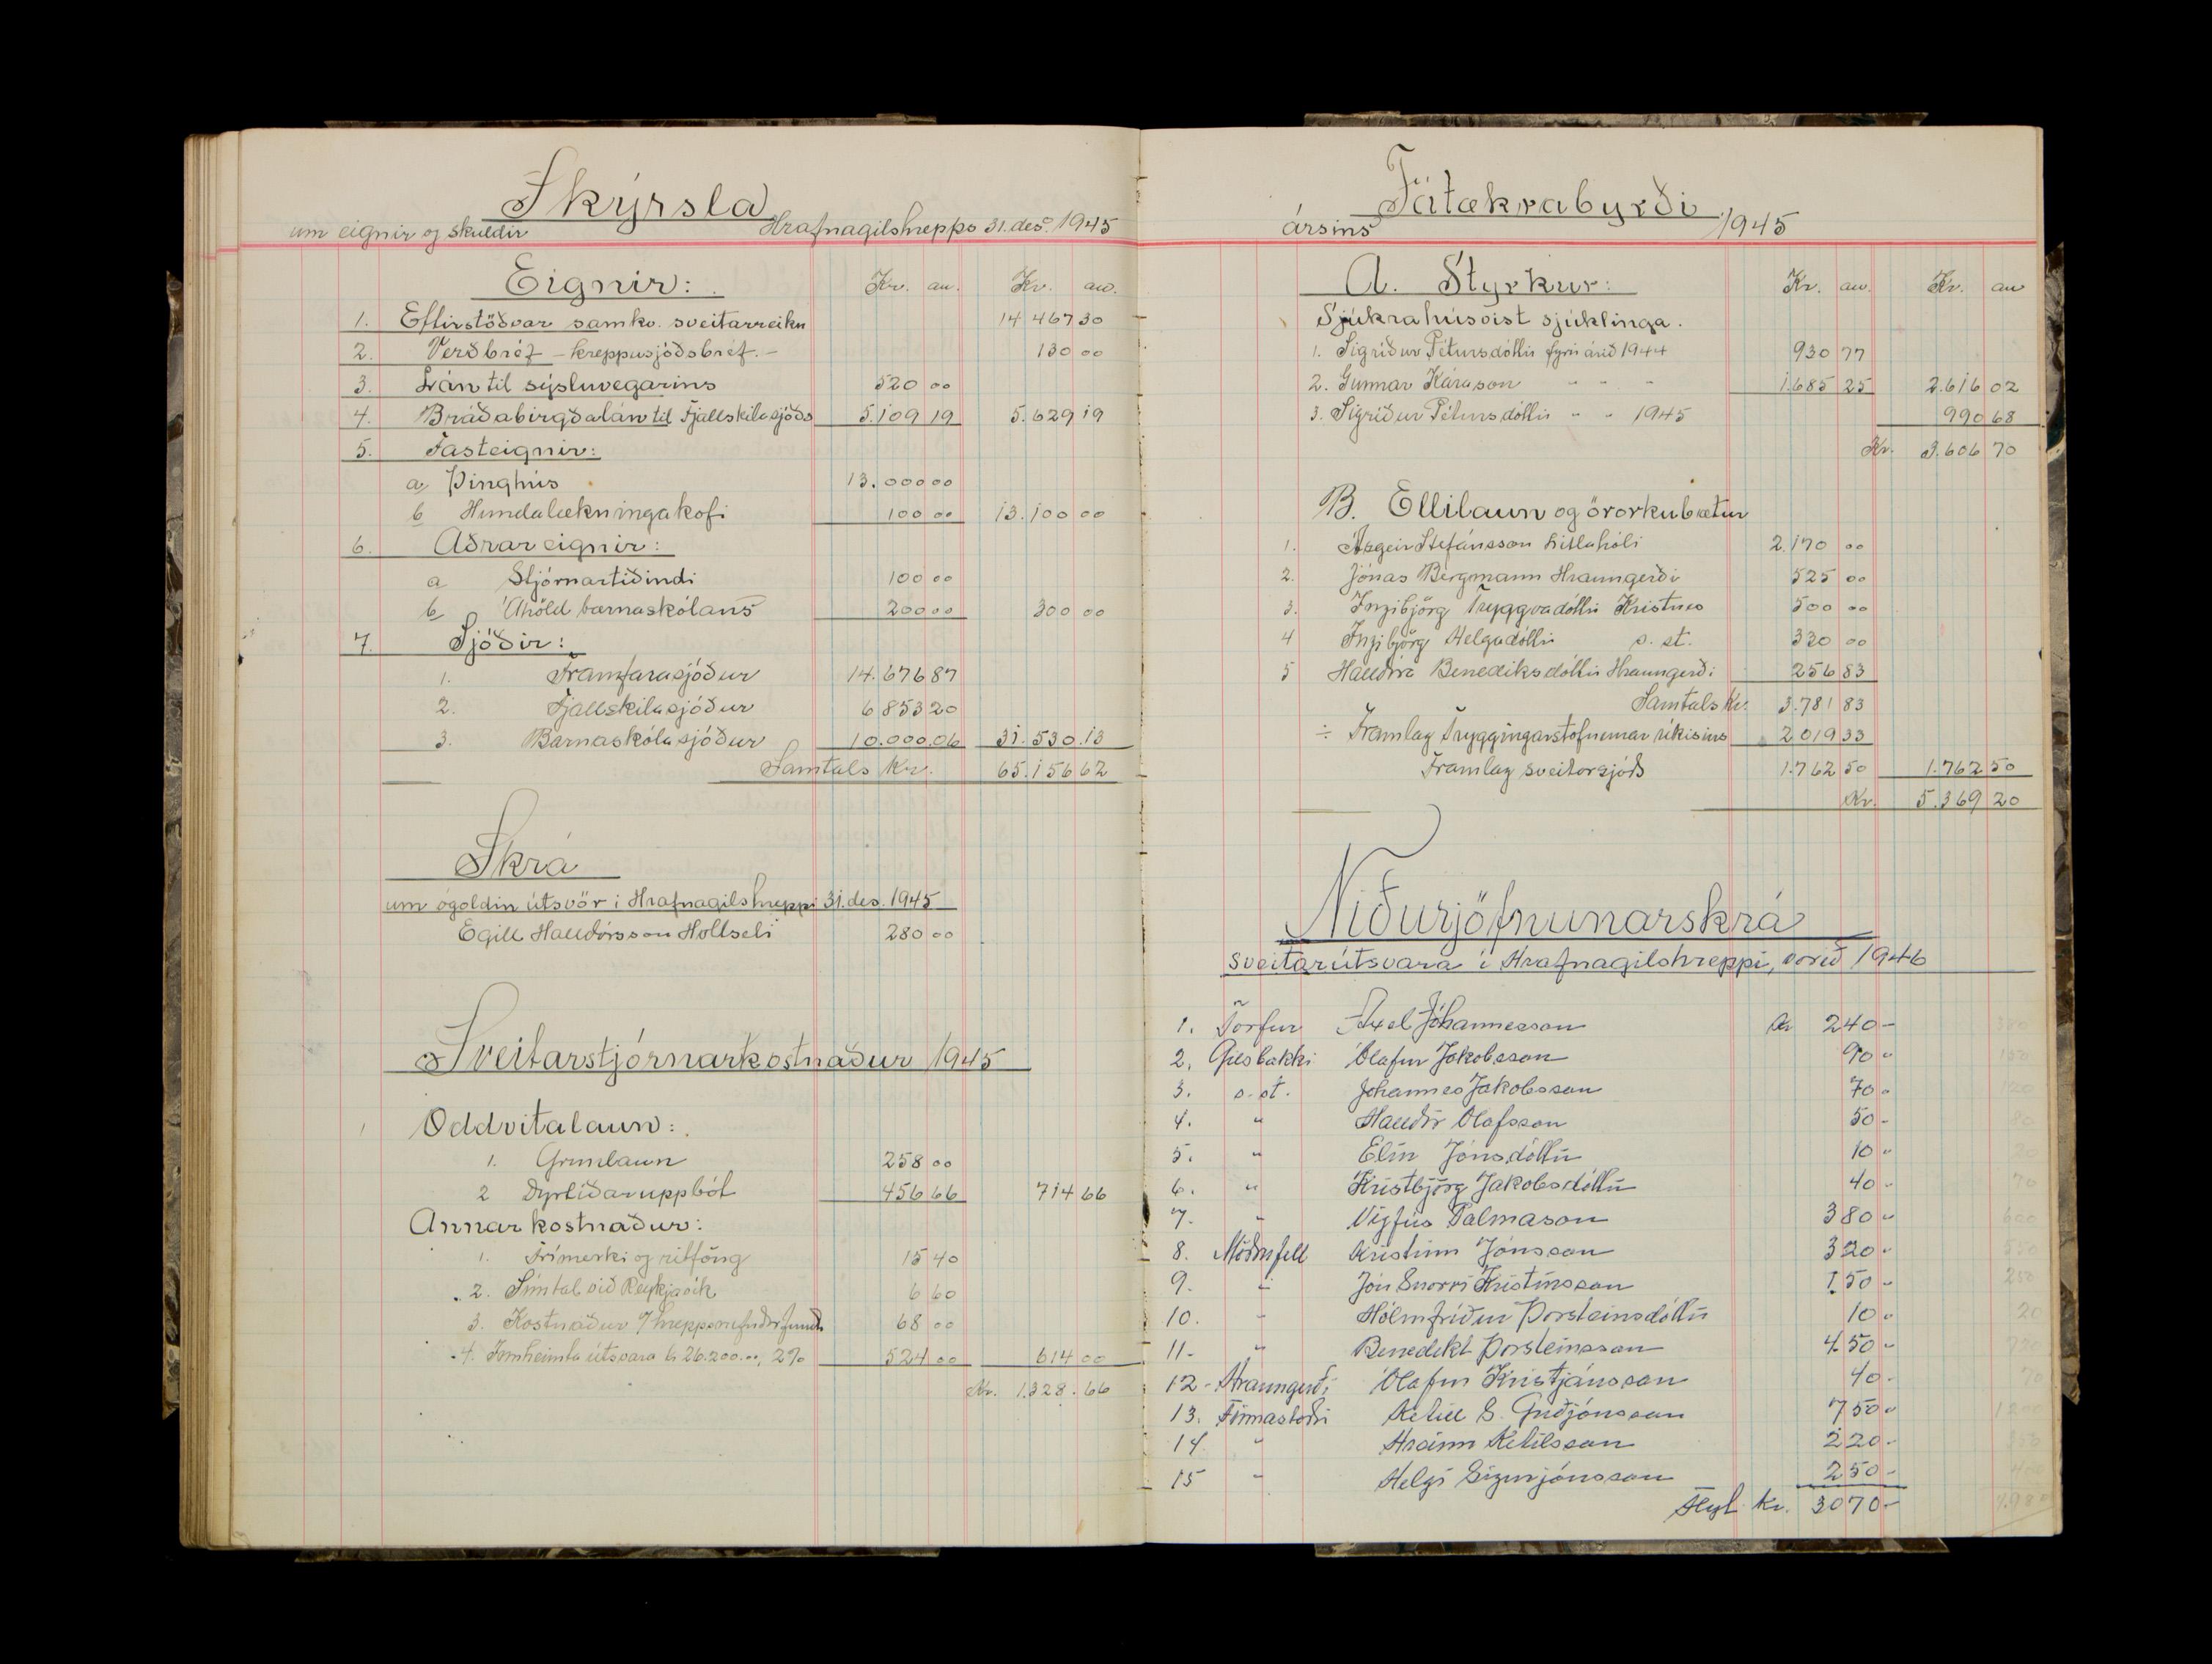 Skýrsla
um eignir og skuldir Hrafnagilshrepps 31. des. 1945
Eignir: Kr. au. Kr. au.
1. Eftirstöðvar samkv. sveitarreikn 14 467 30
2. Verðbréf - kreppusjóðsbréf. - 130 00
3. Lán til sýsluvegarins 520 00
4. Bráðabirgðalán til Fjallskilasjóðs 5.109 19 5.629 19
5. Fasteignir:
a, Þinghús 13.000 00
b Hundalækningakofi 100 00 13.100 00
6. Aðrar eignir:
a Stjórnartíðindi 100 00
b Áhöld barnaskólans 200 00 300 00
7. Sjóðir:
1. Framfarasjóður 14.676 87
2. Fjallskilasjóður 6 853 20
3. Barnaskólasjóður 10.000.06 31.530.13
Samtals Kr. 65.156 62
Skrá
um ógoldin útsvör í Hrafnagilshreppi 31. des. 1945
Egill Halldórsson Holtseli 280 00
Sveitarstjórnarkostnaður 1945
1 Oddvitalaun:
1. Grunlaun 258 00
2 Dýrtíðaruppbót 456 66 714 66
Annar kostnaður:
1. Frímerki og ritföng 15 40
2. Símtal við Reykjavík 6 60
3. Kostnaður 68 00
4. Innheimta útsvara kr 26.200.00, 2% 524 00 614 00
Kr. 1.328.66
Fátækrabyrði
ársins 1945
A. Styrkur: Kr. au. Kr. au
Sjúkrahúsvist sjúklinga.
1. Sigríður Pétursdóttir fyrir árið 1944 930 77
2. Gunnar Kárason " " " 1.685 25 2.616 02
3. Sigríður Pétursdóttir " " 1945 990 68
Kr. 3.606 70
B. Ellilaun og örorkubætur
1. Ásgeir Stefánsson Litlahóli 2.170 00
2. Jónas Bergmann Hraungerði 525 00
3. Ingibjörg Tryggvadóttir Kristnes 500 00
4 Ingibjörg Helgadóttir s. st. 330 00
5 Halldóra Benediksdóttir Hraungerði 256 83
Samtals Kr. 3.781 83
÷ Framlag Tryggingarstofnunar ríkisins 2.019 33
Framlag sveitarsjóðs 1.762 50 1.762 50
Kr. 5.369 20
Niðurjöfnunarskrá
sveitarútsvara í Hrafnagilshreppi, vorið 1946
1. Torfur Axel Jóhannesson Kr 240 -
2. Gilsbakki Ólafur Jakobsson 90 "
3. s. st. Jóhannes Jakobsson 70 "
4. " Halldór Ólafsson 50 -
5. " Elín Jónsdóttir 10 "
6. " Kristbjörg Jakobsdóttir 40 -
7. " Vigfús Pálmason 380 "
8. Möðrufell Kristinn Jónsson 320 "
9. " Jón Snorri Kristinsson 150 -
10. " Hólmfríður Þorsteinsdóttir 10 "
11 - " Benedikt Þorsteinsson 450 "
12 - Hraungerði Ólafur Kristjánsson 40 -
13. Finnastaðir Ketill S. Guðjónsson 750 "
14. " Hrainn Ketilsson 220 -
15 " Helgi Sigurjónsson 250 -
Flyt kr. 3070 -